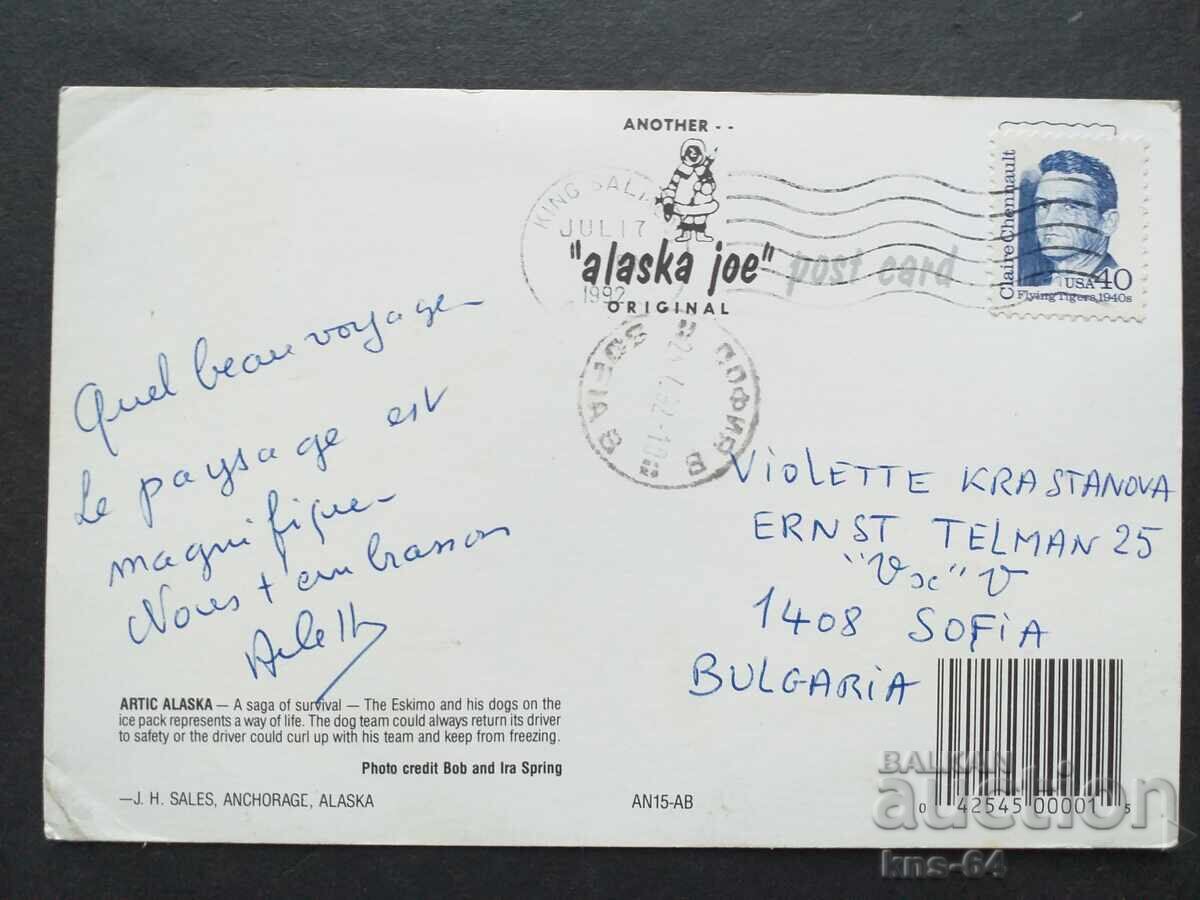 ANOTHER - -
KING SALM
JUL 17
1992
"alaska joe"
ORIGINAL
post card
Claire Chennault
USA 40
Flying Tigers, 1940s
SOFIA 8
СОФИЯ 8
Quel beau voyage
Le paysage est
magnifique
Nous t'embrassons
Arlette
VIOLETTE KRASTANOVA
ERNST TELMAN 25
1408 SOFIA
BULGARIA
ARTIC ALASKA — A saga of survival — The Eskimo and his dogs on the
ice pack represents a way of life. The dog team could always return its driver
to safety or the driver could curl up with his team and keep from freezing.
Photo credit Bob and Ira Spring
—J. H. SALES, ANCHORAGE, ALASKA
AN15-AB
0 42545 00001 5
BALKAN
auction
kns-64